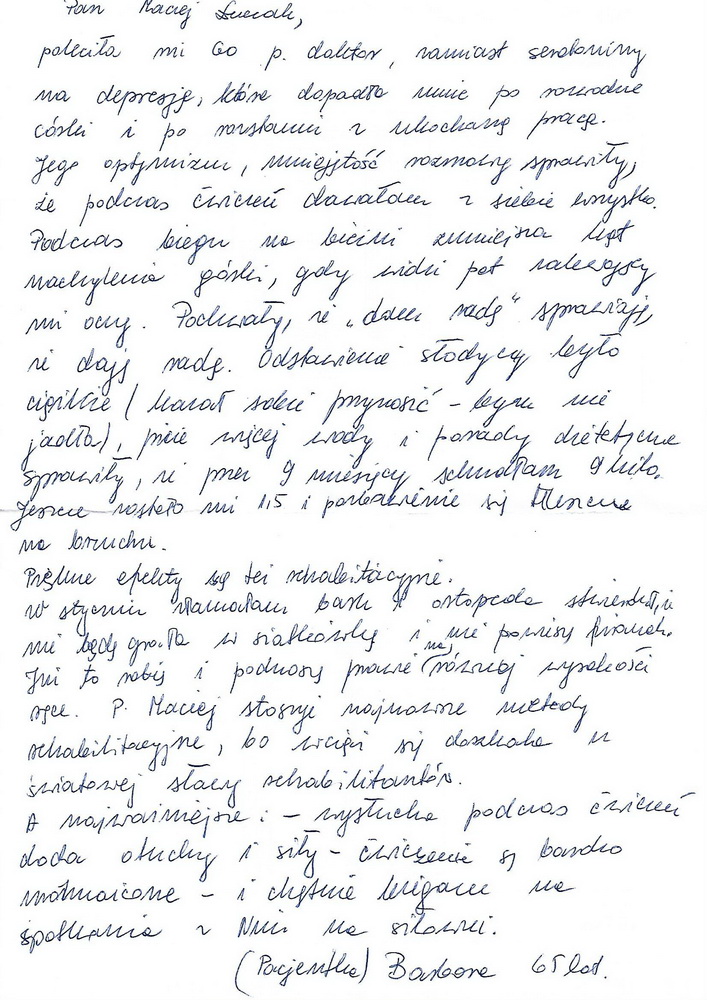 Pan Maciej
poleciła mi Go p. doktor, zamiast serotoniny
na depresję, która dopadła mnie po rozwodzie
córki i po rozstaniu z ukochaną pracą.
Jego optymizm, umiejętność rozmowy sprawiły,
że podczas ćwiczeń dawałam z siebie wszystko.
Podczas biegu na bieżni zmniejsza kąt
nachylenia górki, gdy widzi pot zalewający
mi oczy. Pochwały, że „dam radę" sprawiają,
że daję radę. Odstawienie słodyczy było
ciężkie (kazał sobie przynosić - bym nie
jadła), picie więcej wody i porady dietetyczne
sprawiły, że przez 9 miesięcy schudłam 9 kilo.
Jeszcze zostało mi 1,5 i pozbawienie się tłuszczu
na brzuchu.
Piękne efekty są też rehabilitacyjne.
W styczniu złamałam bark i ortopeda stwierdził, że
nie będę grała w siatkówkę i nie powieszę firanek.
Już to robię i podnoszę prawie na różnej wysokości
ręce. P. Maciej stosuje najnowsze metody
rehabilitacyjne, bo wciąż się doszkala u
światowej sławy rehabilitantów.
A najważniejsze: - wysłucha podczas ćwiczeń
doda otuchy i siły - ćwiczenia są bardzo
urozmaicone - i chętnie biegam na
spotkania z Nim na siłowni.
(Pacjentka) Barbara 65 lat.